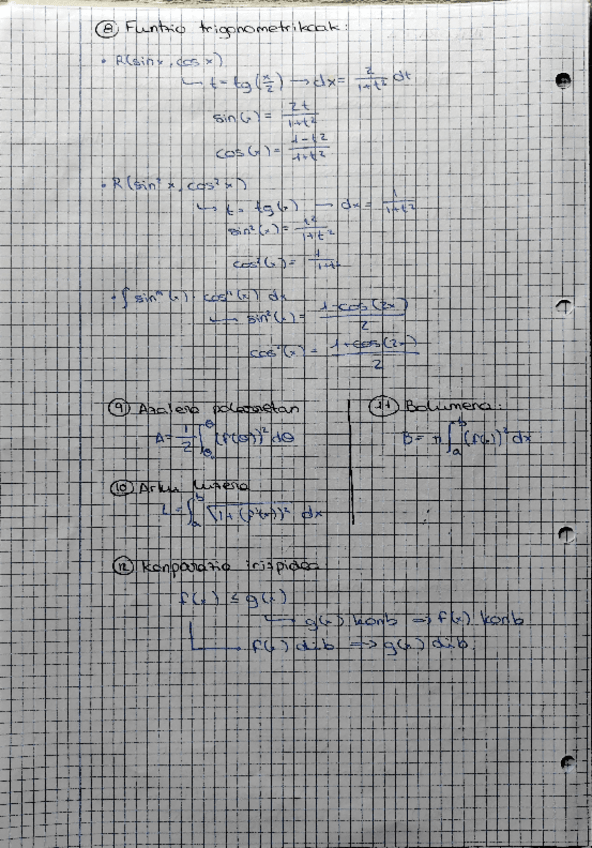 ⑧ Funtzio trigonometrikoak:
• R(sinx, cosx)
↳ t = tg(x/2) → dx = 2/(1+t²) dt
sin(x) = 2t/(1+t²)
cos(x) = (1-t²)/(1+t²)
• R(sin²x, cos²x)
↳ t = tg(x) → dx = 1/(1+t²)
sin²(x) = t²/(1+t²)
cos²(x) = 1/(1+t²)
• ∫ sinⁿ(x) · cosⁿ(x) dx
↳ sin²(x) = (1-cos(2x))/2
cos²(x) = (1+cos(2x))/2
⑨ Azalera polarretan
A = 1/2 ∫ (f(θ))² dθ
⑩ Arku luzera
L = ∫ₐᵇ √(1+(f'(x))²) dx
⑪ Bolumena:
B = π ∫ₐᵇ (f(x))² dx
⑫ Konparazio irizpidea
f(x) ≤ g(x)
↳ g(x) konb ⇒ f(x) konb
f(x) dib ⇒ g(x) dib.